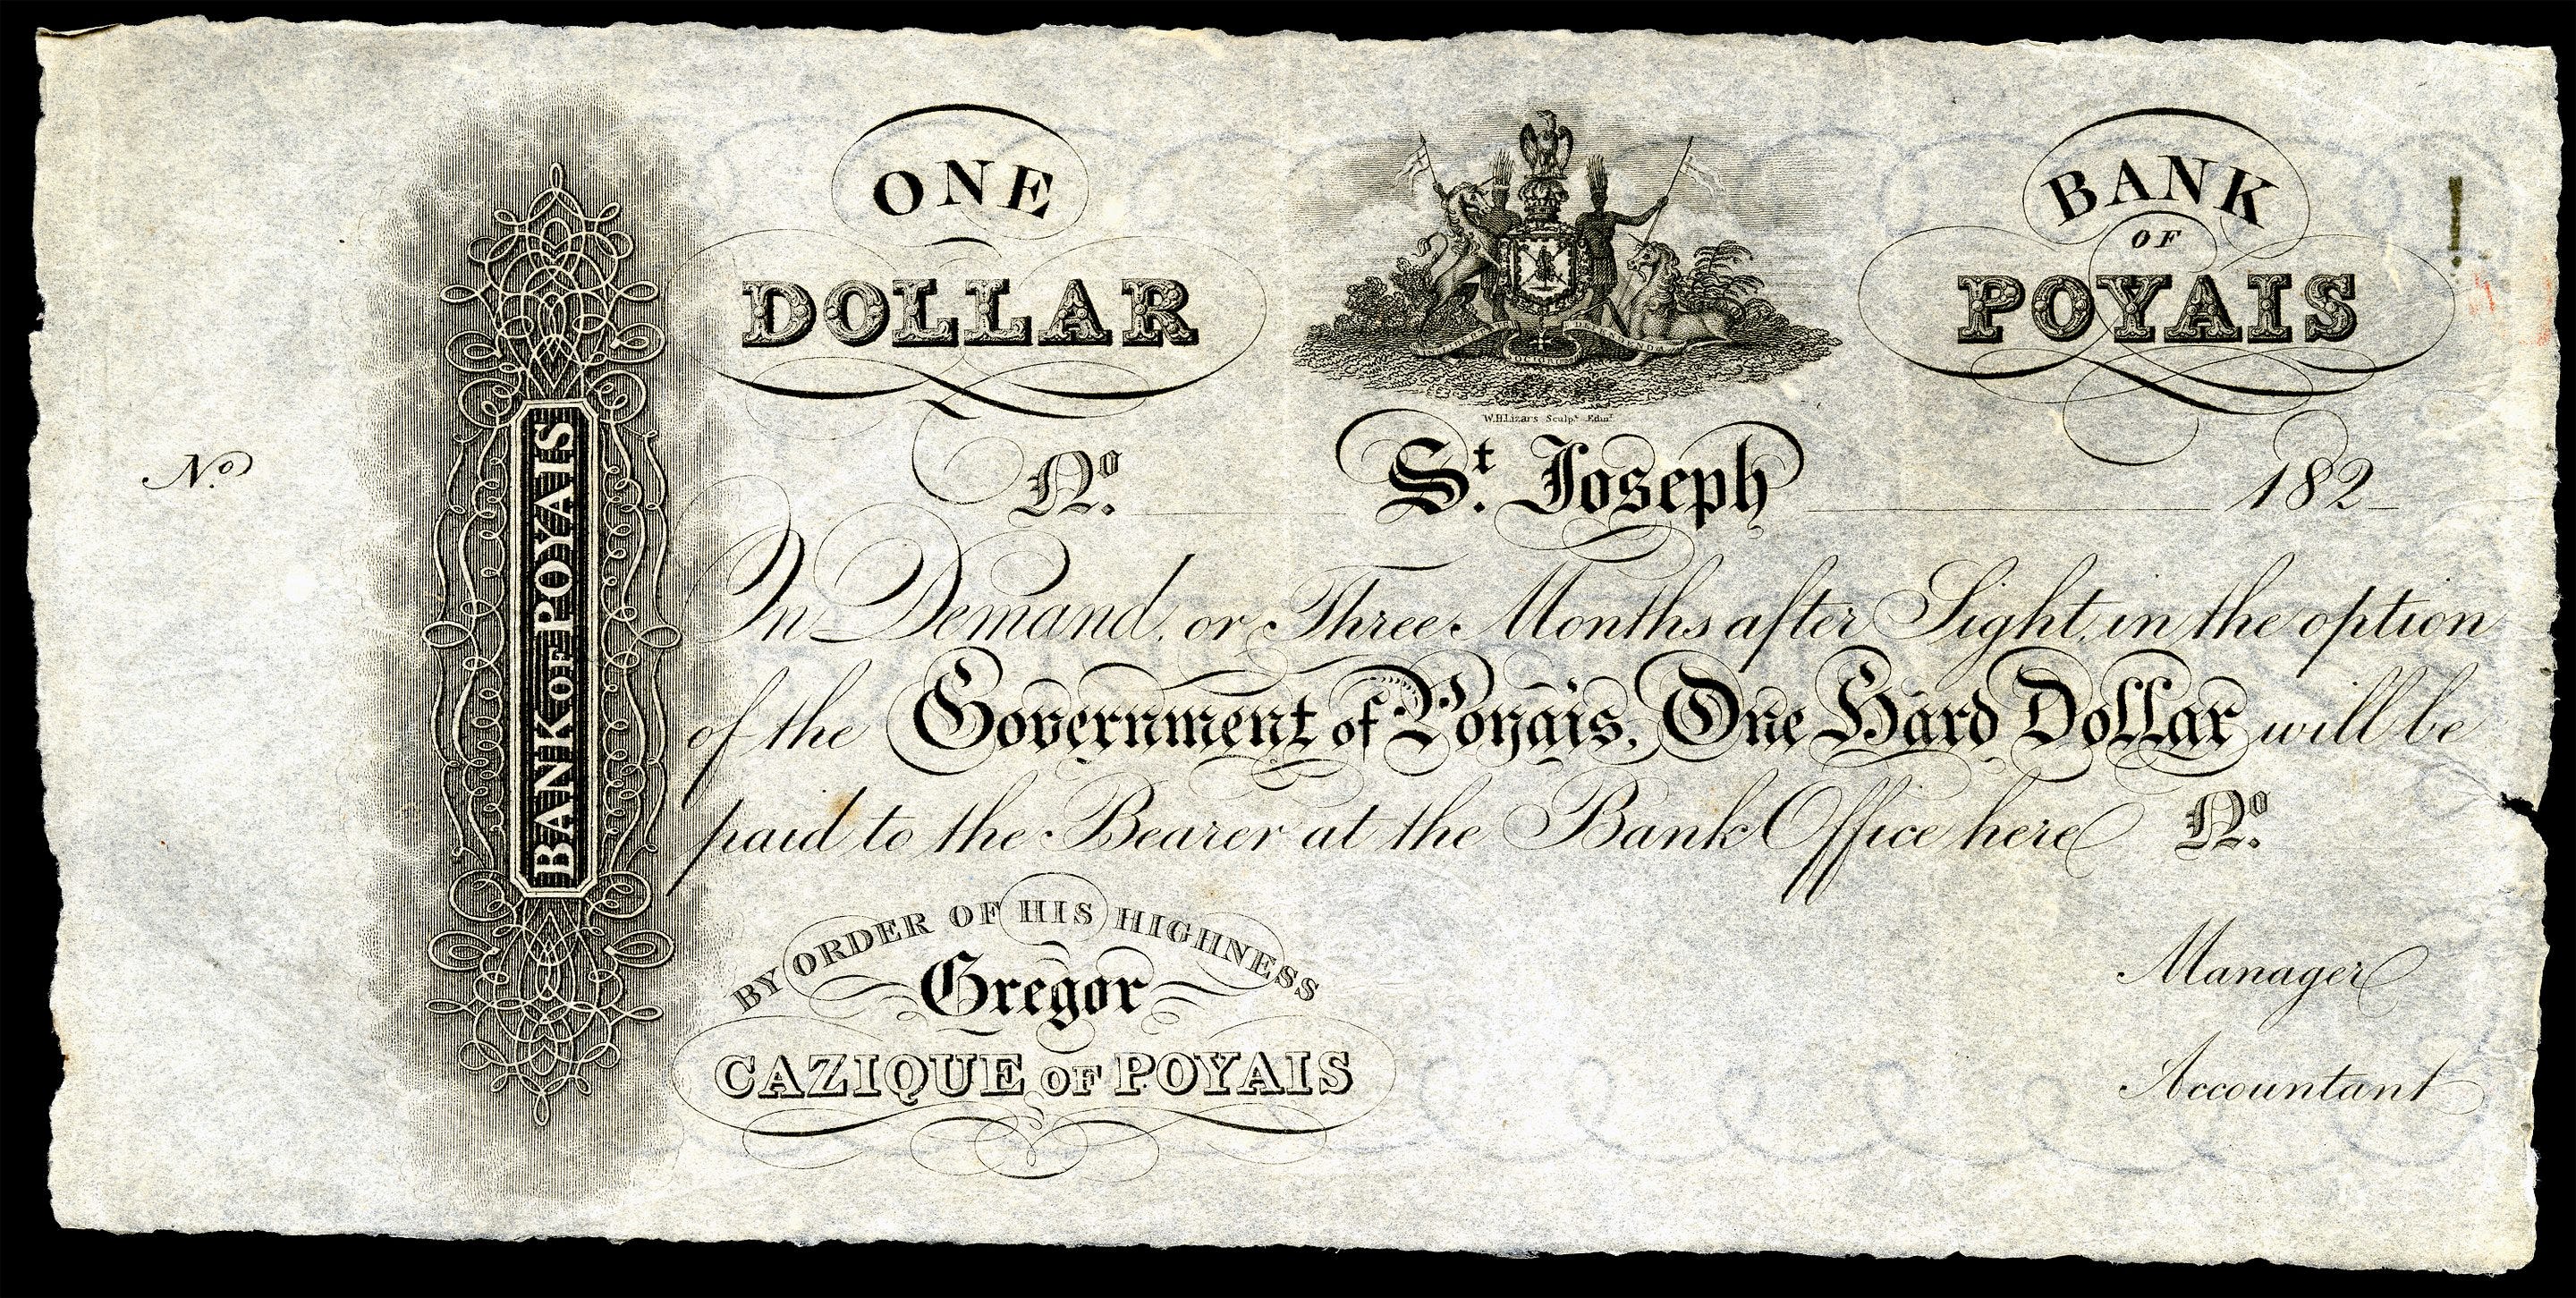 No.
BANK OF POYAIS
ONE
DOLLAR
BANK
OF
POYAIS
W.H.Lizars Sculpt. Edinr.
No. St. Joseph 182
On Demand, or Three Months after Sight, in the option
of the Government of Poyais, One Hard Dollar will be
paid to the Bearer at the Bank Office here No.
BY ORDER OF HIS HIGHNESS
Gregor
CAZIQUE OF POYAIS
Manager
Accountant